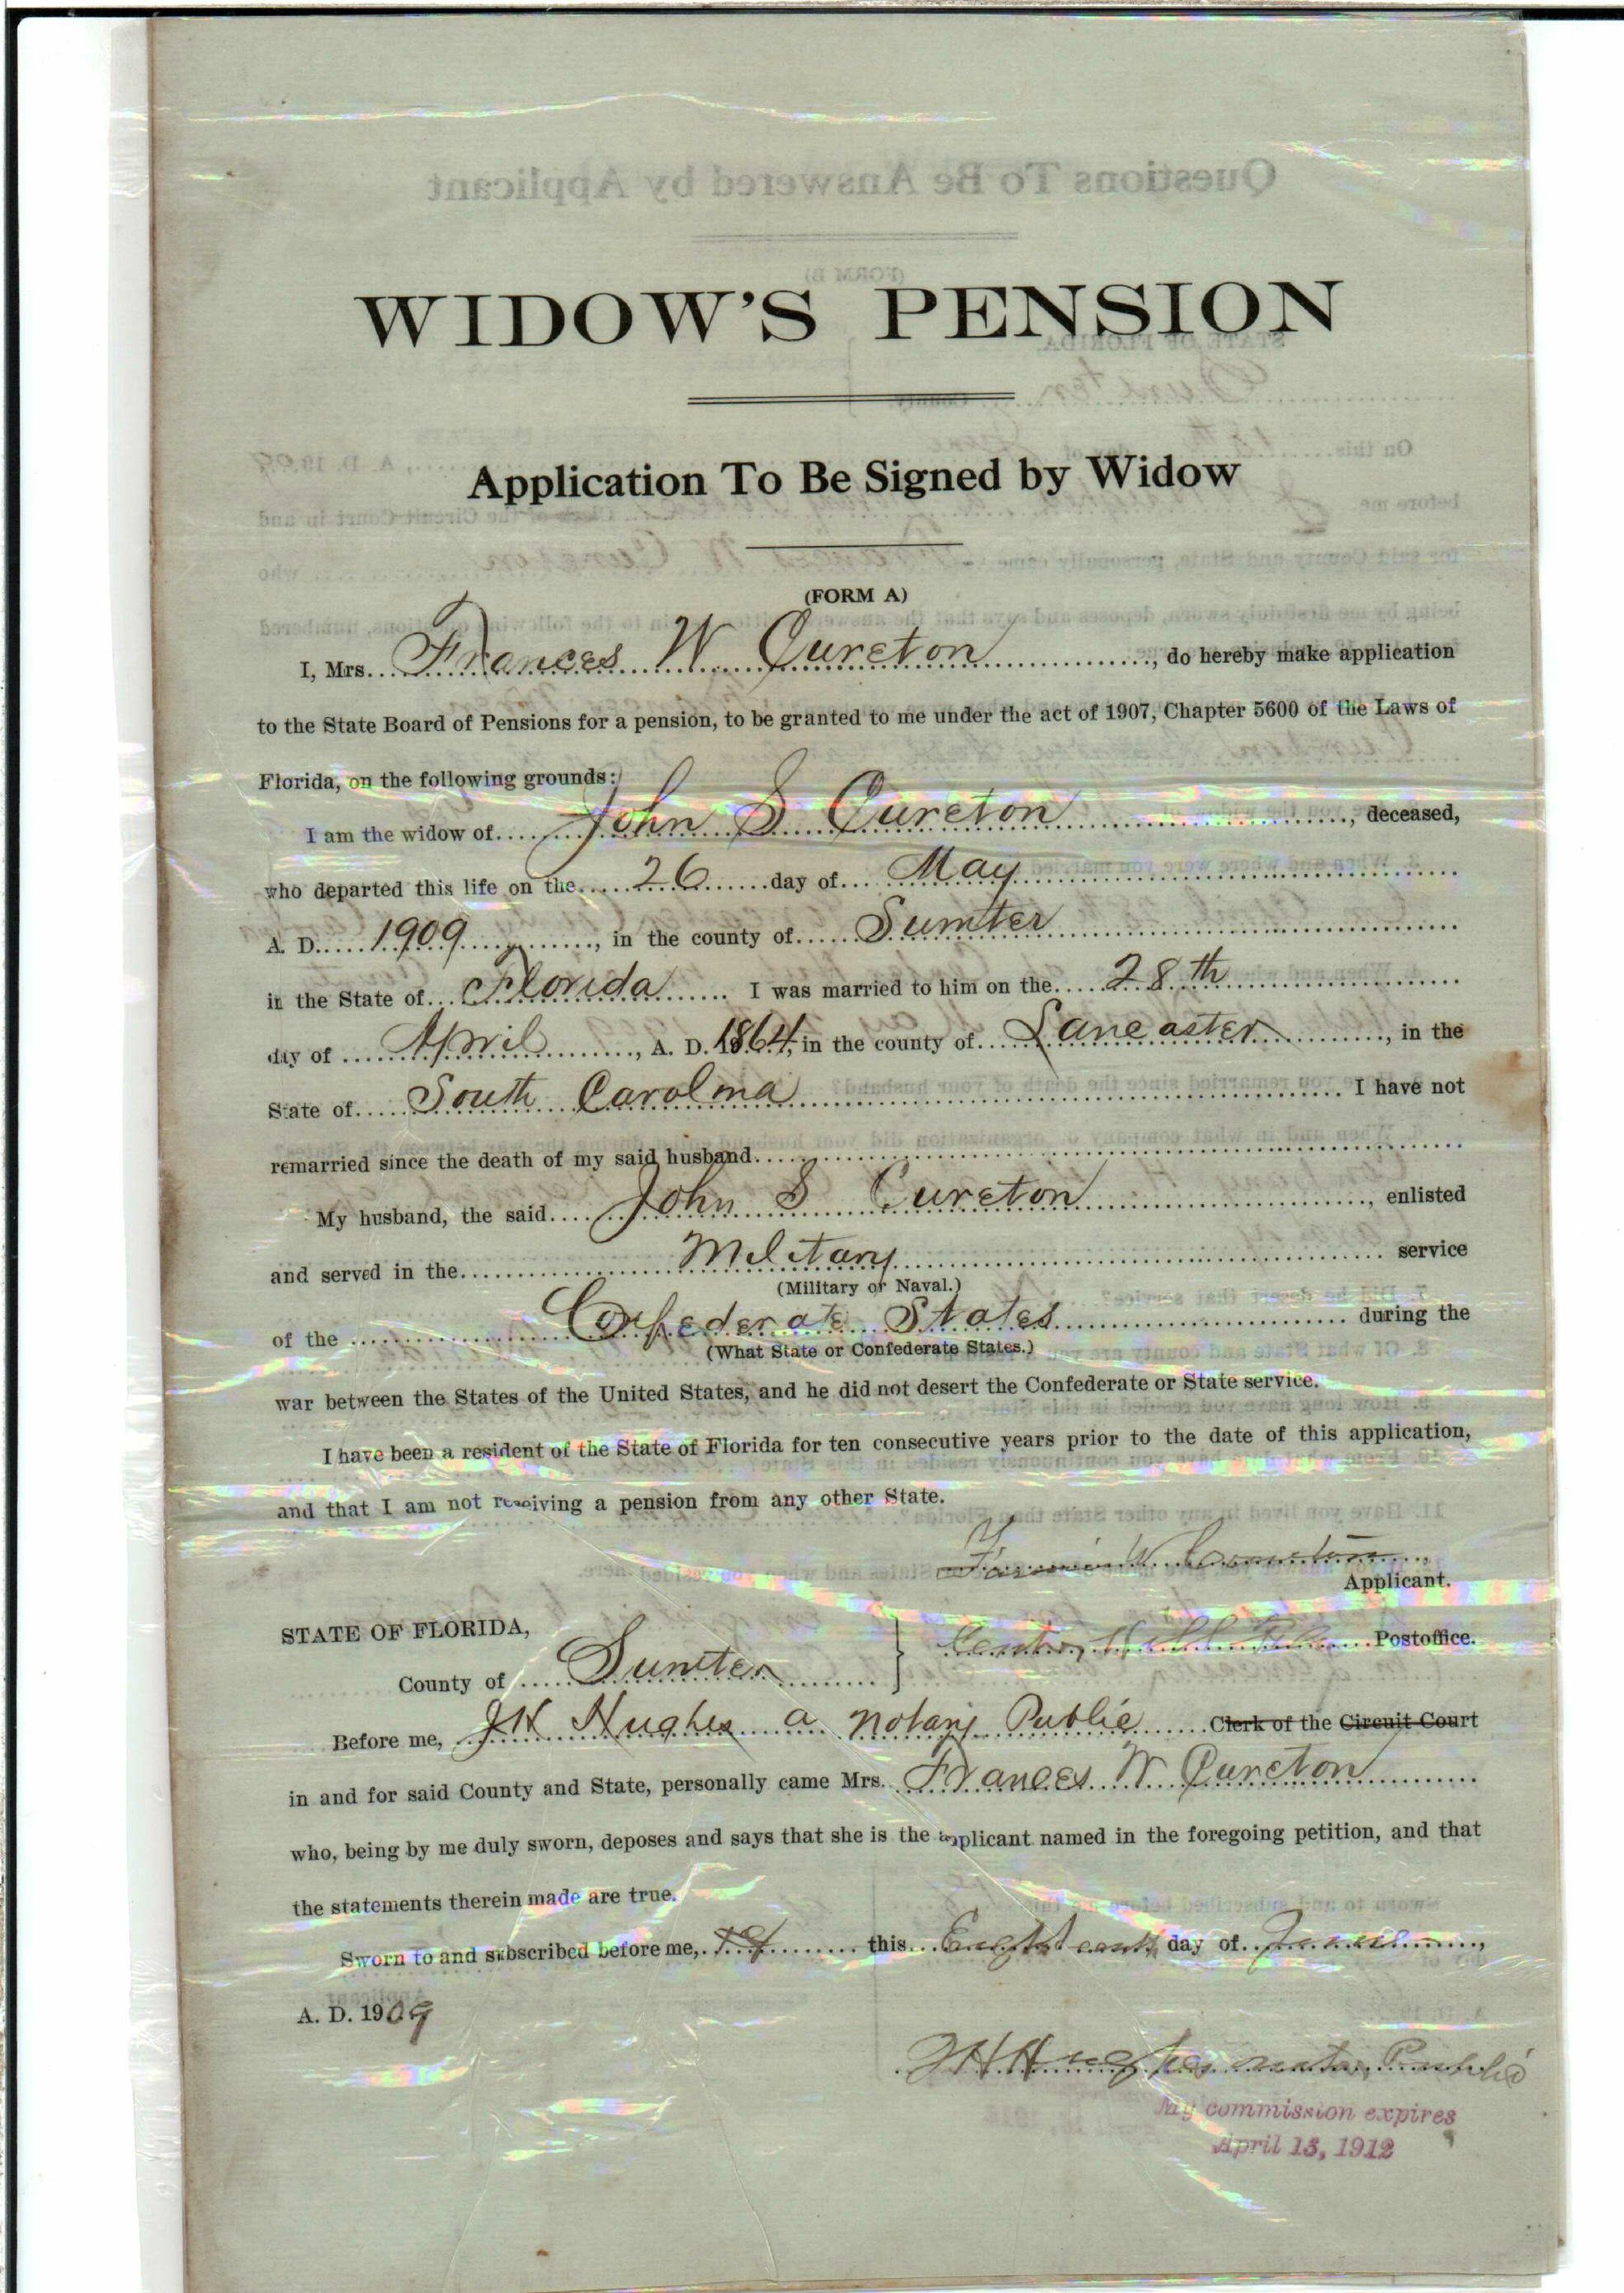 WIDOW'S PENSION
Application To Be Signed by Widow
(FORM A)
I, Mrs. Frances W Cureton, do hereby make application
to the State Board of Pensions for a pension, to be granted to me under the act of 1907, Chapter 5600 of the Laws of
Florida, on the following grounds:
I am the widow of John S Cureton, deceased,
who departed this life on the 26 day of May
A. D. 1909, in the county of Sumter
in the State of Florida I was married to him on the 28th
day of April, A. D. 1864, in the county of Lancaster, in the
State of South Carolina I have not
remarried since the death of my said husband.
My husband, the said John S Cureton, enlisted
and served in the Military service
(Military or Naval.)
of the Confederate States during the
(What State or Confederate States.)
war between the States of the United States, and he did not desert the Confederate or State service.
I have been a resident of the State of Florida for ten consecutive years prior to the date of this application,
and that I am not receiving a pension from any other State.
W. Cureton
Applicant.
STATE OF FLORIDA,
Center Hill Fla Postoffice.
County of Sumter
Before me, J H Hughes a Notary Public Clerk of the Circuit Court
in and for said County and State, personally came Mrs. Frances W Cureton
who, being by me duly sworn, deposes and says that she is the applicant named in the foregoing petition, and that
the statements therein made are true.
Sworn to and subscribed before me, this Eighteenth day of June,
A. D. 1909
J H Hughes notary Public
My commission expires
April 13, 1912